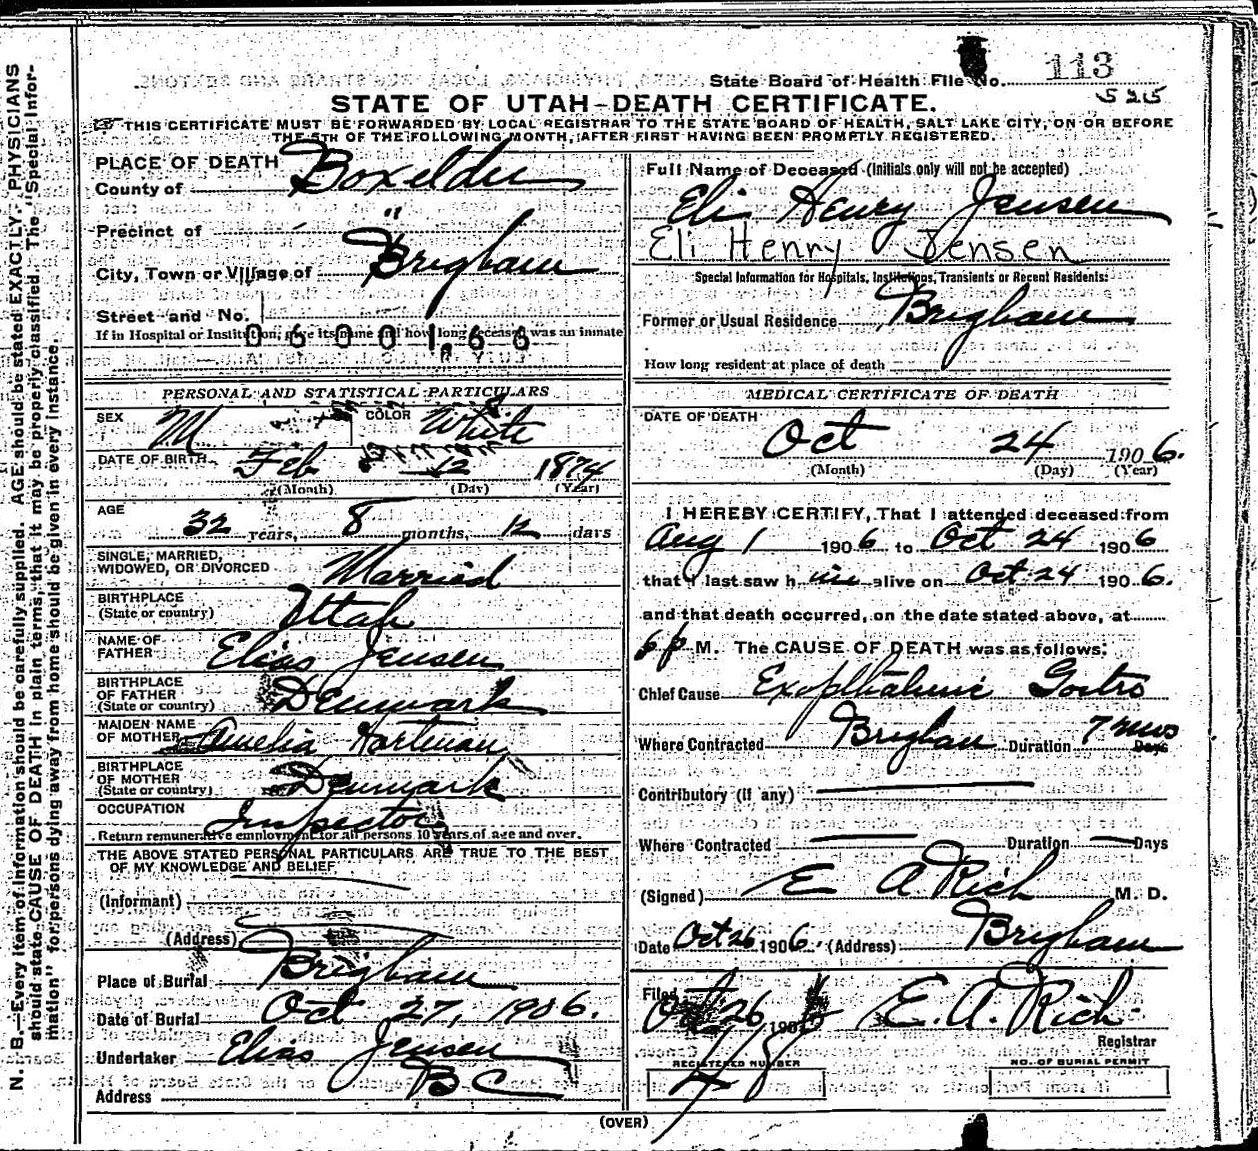 State Board of Health File No. 113
525
STATE OF UTAH—DEATH CERTIFICATE.
THIS CERTIFICATE MUST BE FORWARDED BY LOCAL REGISTRAR TO THE STATE BOARD OF HEALTH, SALT LAKE CITY, ON OR BEFORE
THE 5TH OF THE FOLLOWING MONTH, AFTER FIRST HAVING BEEN PROMPTLY REGISTERED.
N. B.—Every item of information should be carefully supplied. AGE should be stated EXACTLY. PHYSICIANS
should state CAUSE OF DEATH in plain terms, that it may be properly classified. The "Special Infor-
mation" for persons dying away from home should be given in every instance.
PLACE OF DEATH
County of Boxelder
Precinct of "
City, Town or Village of Brigham
Street and No.
If in Hospital or Institution, give its name and how long deceased was an inmate
0600166
PERSONAL AND STATISTICAL PARTICULARS
SEX M COLOR White
DATE OF BIRTH Feb 12 1874
(Month) (Day) (Year)
AGE
32 years, 8 months, 12 days
SINGLE, MARRIED,
WIDOWED, OR DIVORCED Married
BIRTHPLACE
(State or country) Utah
NAME OF
FATHER Elias Jensen
BIRTHPLACE
OF FATHER
(State or country) Denmark
MAIDEN NAME
OF MOTHER Amelia Hartman
BIRTHPLACE
OF MOTHER
(State or country) Denmark
OCCUPATION Inspector
Return remunerative employment for all persons 10 years of age and over.
THE ABOVE STATED PERSONAL PARTICULARS ARE TRUE TO THE BEST
OF MY KNOWLEDGE AND BELIEF
(Informant)
(Address)
Place of Burial Brigham
Date of Burial Oct 27, 1906.
Undertaker Elias Jensen
Address B C
Full Name of Deceased (Initials only will not be accepted)
Eli Henry Jensen
Eli Henry Jensen
Special Information for Hospitals, Institutions, Transients or Recent Residents:
Former or Usual Residence Brigham
How long resident at place of death
MEDICAL CERTIFICATE OF DEATH
DATE OF DEATH
Oct 24 1906.
(Month) (Day) (Year)
I HEREBY CERTIFY, That I attended deceased from
Aug 1 1906 to Oct 24 1906
that I last saw him alive on Oct 24 1906.
and that death occurred, on the date stated above, at
6 p M. The CAUSE OF DEATH was as follows:
Chief Cause Exopthalmic Goitre
Where Contracted Brigham Duration 7 mos Days
Contributory (if any)
Where Contracted Duration Days
(Signed) E A Rich M. D.
Date Oct 26 1906. (Address) Brigham
Filed Oct 26 1906 E. A. Rich
Registrar
REGISTERED NUMBER NO. OF BURIAL PERMIT
(OVER)